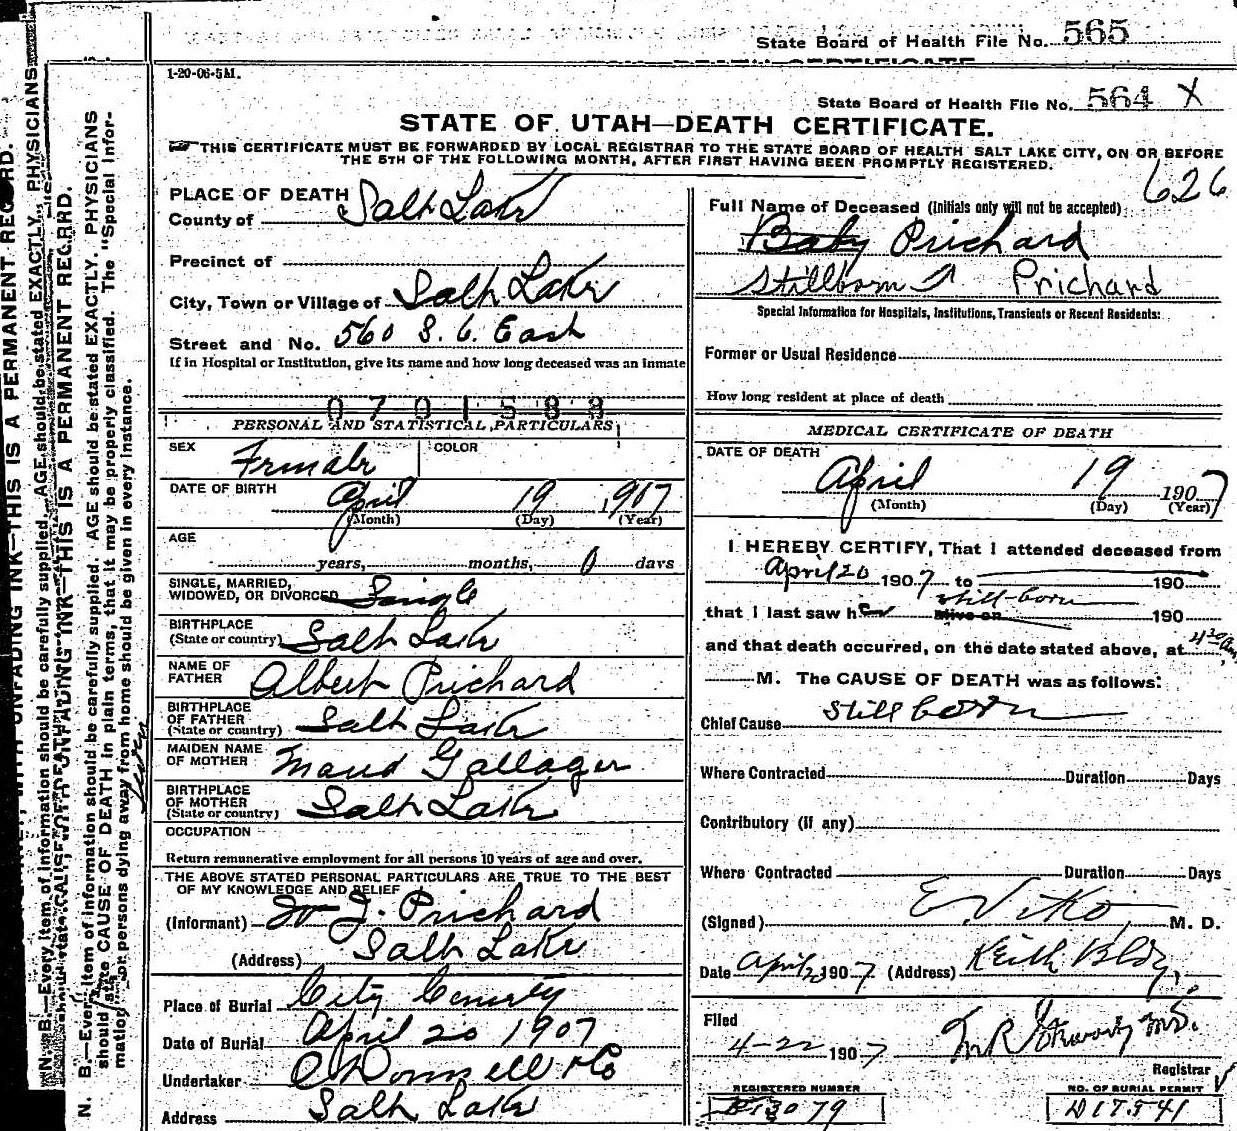 State Board of Health File No. 565
1-20-06-5M.
State Board of Health File No. 564 X
STATE OF UTAH—DEATH CERTIFICATE.
THIS CERTIFICATE MUST BE FORWARDED BY LOCAL REGISTRAR TO THE STATE BOARD OF HEALTH SALT LAKE CITY, ON OR BEFORE
THE 5TH OF THE FOLLOWING MONTH, AFTER FIRST HAVING BEEN PROMPTLY REGISTERED.
626
PLACE OF DEATH
County of Salt Lake
Precinct of
City, Town or Village of Salt Lake
Street and No. 560 S. 6. East
If in Hospital or Institution, give its name and how long deceased was an inmate
0701583
PERSONAL AND STATISTICAL PARTICULARS
SEX Female COLOR
DATE OF BIRTH April 19 1907
(Month) (Day) (Year)
AGE
years, months, 0 days
SINGLE, MARRIED,
WIDOWED, OR DIVORCED Single
BIRTHPLACE
(State or country) Salt Lake
NAME OF
FATHER Albert Prichard
BIRTHPLACE
OF FATHER
(State or country) Salt Lake
MAIDEN NAME
OF MOTHER Maud Gallager
BIRTHPLACE
OF MOTHER
(State or country) Salt Lake
OCCUPATION
Return remunerative employment for all persons 10 years of age and over.
THE ABOVE STATED PERSONAL PARTICULARS ARE TRUE TO THE BEST
OF MY KNOWLEDGE AND BELIEF
(Informant) W J. Prichard
(Address) Salt Lake
Place of Burial City Cemetery
Date of Burial April 20 1907
Undertaker O'Donnell & Co
Address Salt Lake
Full Name of Deceased (Initials only will not be accepted)
Baby Prichard
Stillborn Prichard
Special Information for Hospitals, Institutions, Transients or Recent Residents:
Former or Usual Residence
How long resident at place of death
MEDICAL CERTIFICATE OF DEATH
DATE OF DEATH
April 19 1907
(Month) (Day) (Year)
I HEREBY CERTIFY, That I attended deceased from
April 20 1907 to 190
that I last saw her alive on still-born 190
and that death occurred, on the date stated above, at 4 30 am
M. The CAUSE OF DEATH was as follows:
Chief Cause Still born
Where Contracted Duration Days
Contributory (if any)
Where Contracted Duration Days
(Signed) E Viko M. D.
Date April 1907 (Address) Keith Bldg.
Filed
4-22 1907
Registrar
REGISTERED NUMBER
NO. OF BURIAL PERMIT
13079
D17541
N. B.—Every item of information should be carefully supplied. AGE should be stated EXACTLY. PHYSICIANS
THIS IS A PERMANENT RECORD.
N. B.—Every item of information should be carefully supplied. AGE should be stated EXACTLY. PHYSICIANS
should state CAUSE OF DEATH in plain terms, that it may be properly classified. The "Special Infor-
mation" for persons dying away from home should be given in every instance.